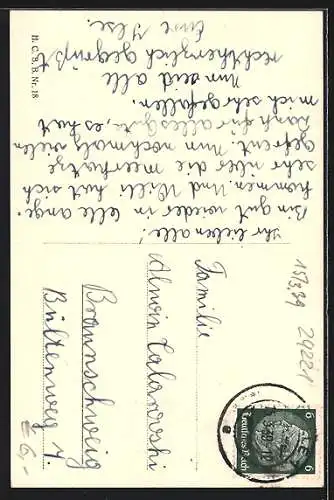 Ihr lieben alle!
Bin gut wieder in Celle ange-
kommen. Und Willi hat sich
sehr über die
gefreut. Nun nochmals vielen
Dank für alles gute, es hat
mich sehr gefallen.
Nun seid alle
recht herzlich gegrüßt
Eure Ilse.
H. C. B. B. Nr. 18
Familie
Alwin
Braunschweig
Bültenweg
€ 6,-
6
Deutsches Reich
6